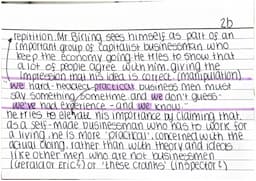 2b
repitition. Mr Birling sees himself as part of an
important group of capitalist businessman who
keep the economy going. He tries to show that
a lot of people agree with him, giving the
impression that his idea is correct. (manipulation)
we hard-headed practical business men must
say something sometime and we don't guess-
we've had experience - and we know."
he tries to elevate his importance by claiming that,
as a self-made businessman who has to work for
a living, he is more 'practical', concerned with the
actual doing, rather than with theory and ideas
like other men who are not businessmen
(Gerald or Eric?) or 'these cranks' (Inspector?)